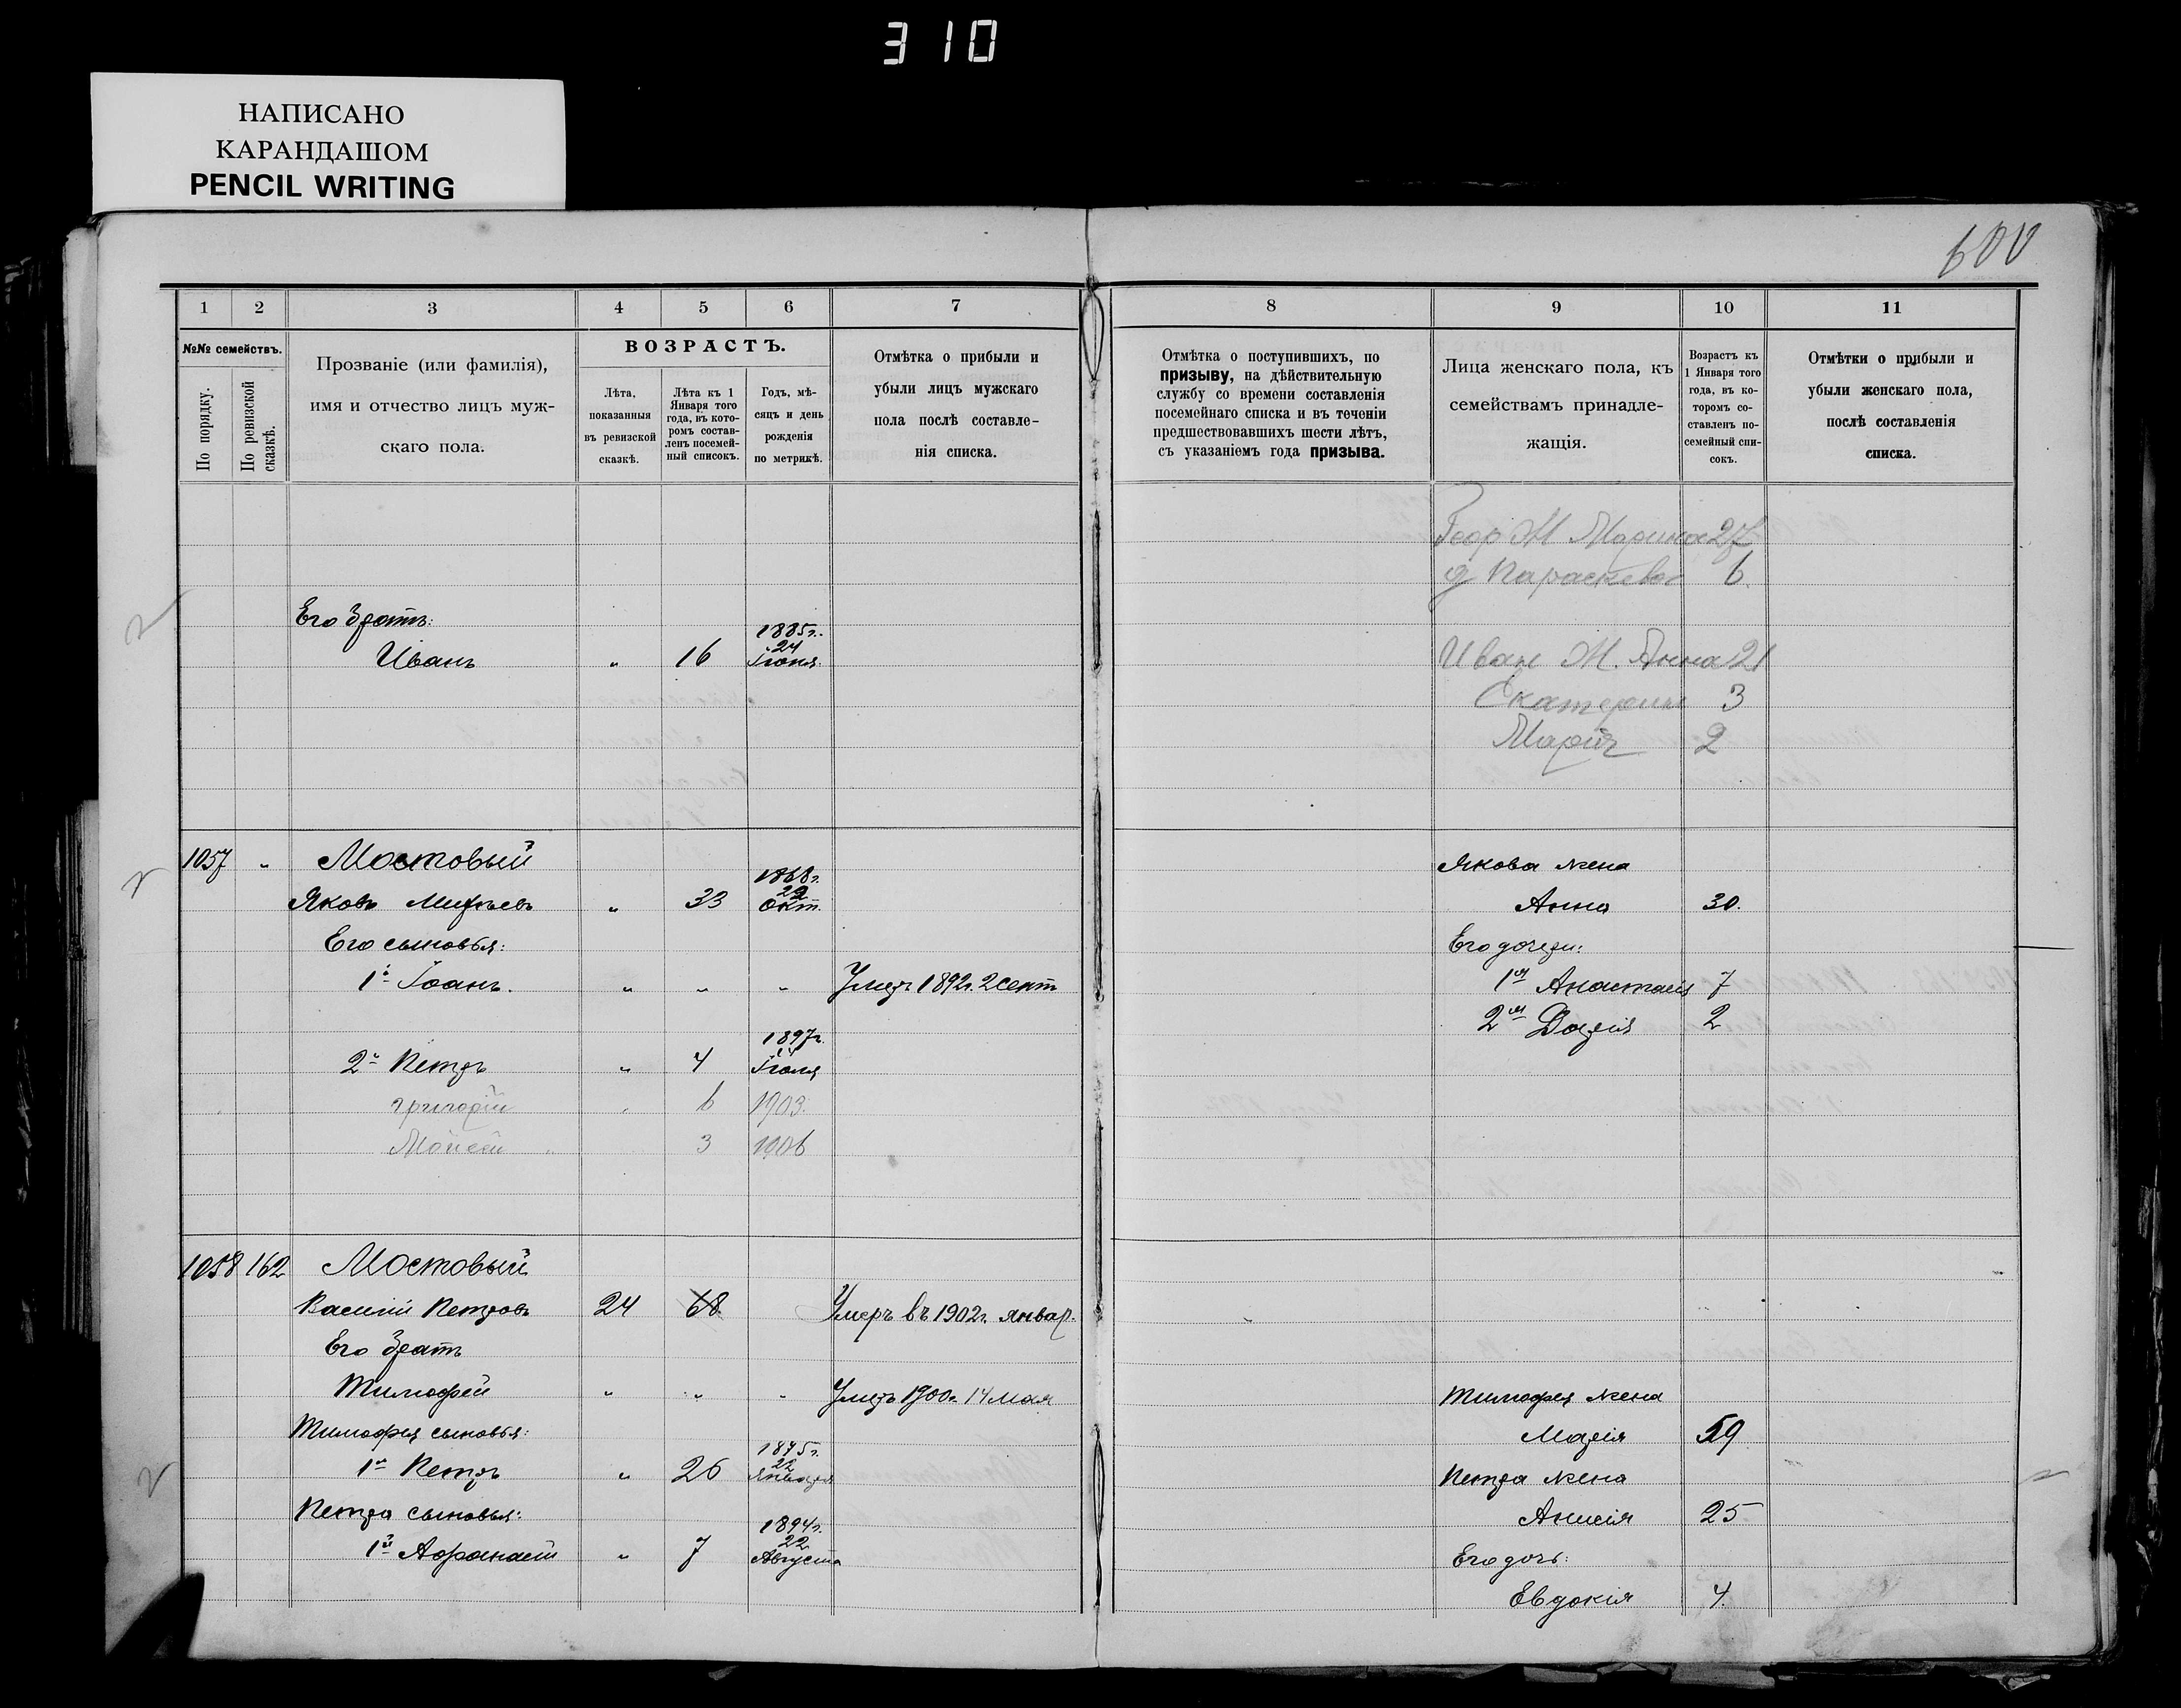 310
НАПИСАНО
КАРАНДАШОМ
PENCIL WRITING
600
1 2 3 4 5 6 7 8 9 10 11
№№ семействъ.
По порядку.
По ревизской сказкѣ.
Прозваніе (или фамилія),
имя и отчество лицъ муж-
скаго пола.
ВОЗРАСТЪ.
Лѣта,
показанныя
въ ревизской
сказкѣ.
Лѣта къ 1
Января того
года, въ кото-
ромъ состав-
ленъ посемей-
ный списокъ.
Годъ, мѣ-
сяцъ и день
рожденія
по метрикѣ.
Отмѣтка о прибыли и
убыли лицъ мужскаго
пола послѣ составле-
нія списка.
Отмѣтка о поступившихъ, по
призыву, на дѣйствительную
службу со времени составленія
посемейнаго списка и въ теченіи
предшествовавшихъ шести лѣтъ,
съ указаніемъ года призыва.
Лица женскаго пола, къ
семействамъ принадле-
жащія.
Возрастъ къ
1 Января того
года, въ ко-
торомъ со-
ставленъ по-
семейный спи-
сокъ.
Отмѣтки о прибыли и
убыли женскаго пола,
послѣ составленія
списка.
Геор Ж Марина 27
д Параскева 6.
Его братъ:
1885г.
24
Иванъ " 16 Іюня. Иван Ж. Анна 21
Екатерин 3
Марія 2
1057 " Мостовый Якова жена
1868г.
22
Яковъ " 33 Окт. Анна 30.
Его сыновья: Его дочери:
1й Іоанъ. " " " Умеръ 1892г. 2 сент 1ая Анастасія 7
2ая Дарія 2
1897г.
2й Петръ " 4 Іюля
Григорій 6 1903.
Моисей " 3 1906
1058 162 Мостовый
Василій Петровъ 24 68 Умеръ въ 1902г. январ.
Его братъ
Тимофей " " " Умеръ 1900г. 14 мая Тимофея жена
Тимофея сыновья: Марія 59
1875г.
22
1й Петръ " 26 Января Петра жена
Петра сыновья: Анисія 25
1894г.
22
1й Афанасій " 7 Августа Его дочь:
Евдокія 4.